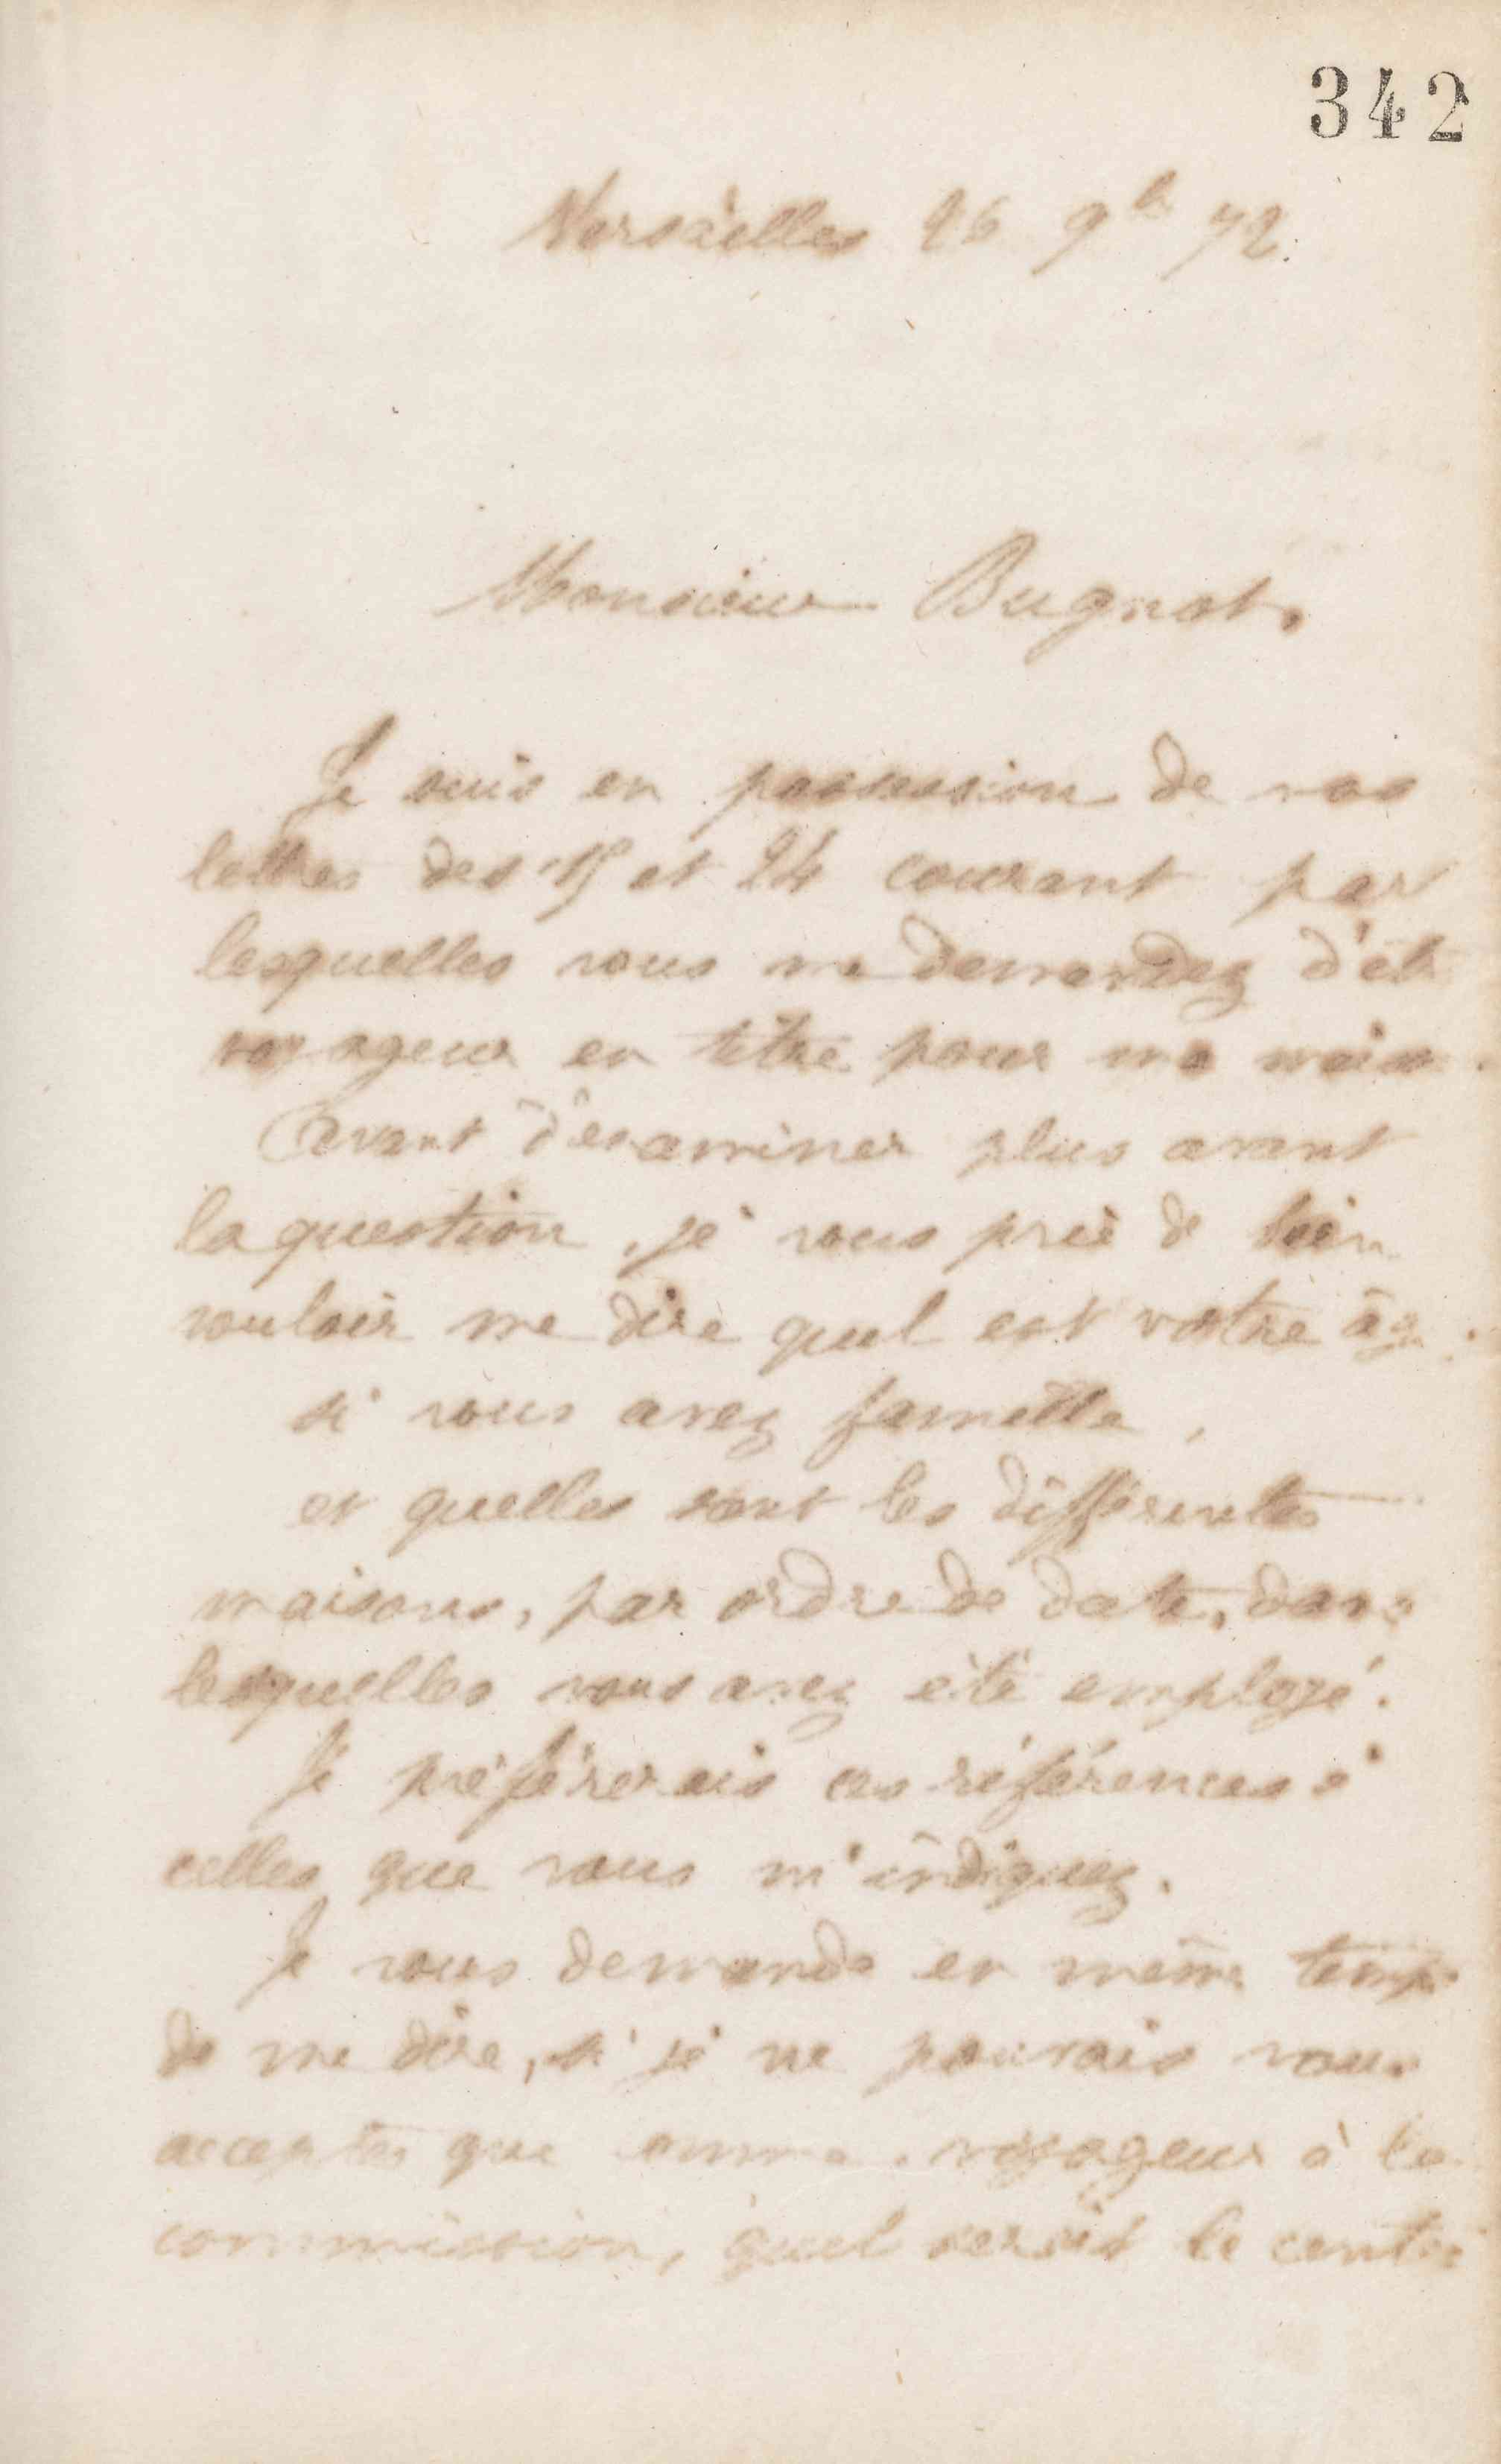 342
Versailles 26 9b 72.
Monsieur Bugnot,
Je suis en possession de vos
lettres des 15 et 24 courant par
lesquelles vous me demandez d'être
voyageur en titre pour ma
avant d'examiner plus avant
la question, je vous prie de bien
vouloir me dire quel est votre âge.
si vous avez famille,
et quelles sont les différentes
maisons, par ordre de date, dans
lesquelles vous avez été employé.
Je préférerais ces références à
celles que vous m'indiquez.
Je vous demande en même temps
de me dire, si je ne pouvais vous
accepter que comme voyageur à la
commission, quel serait le centre